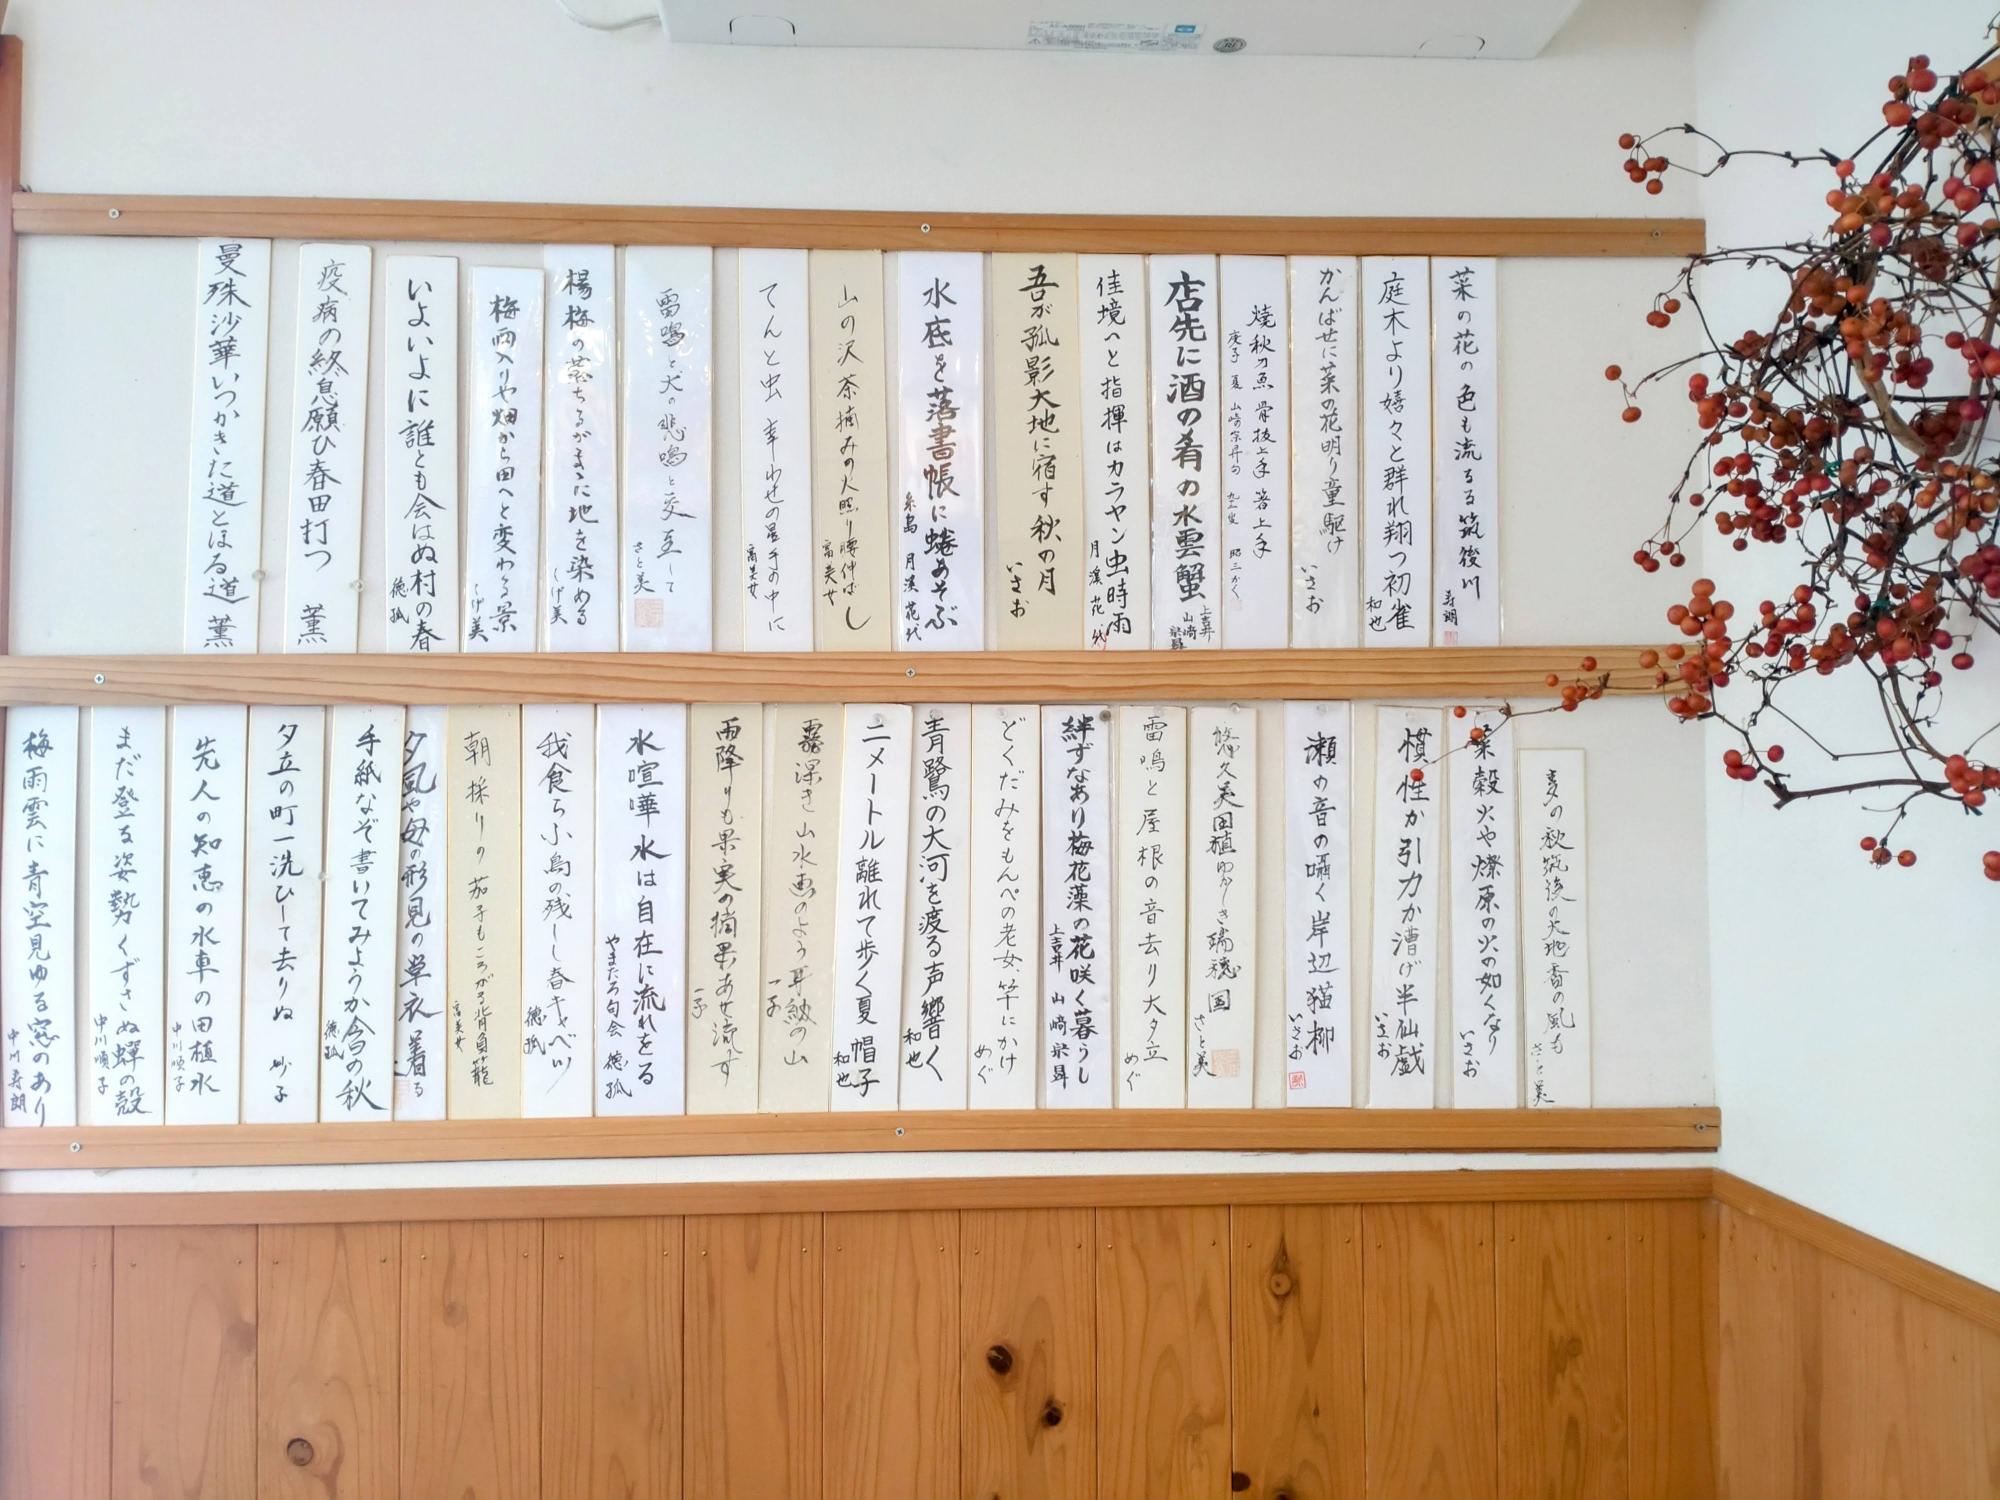 菜の花の色も流るる筑後川
寿朗
庭木より嬉々と群れ翔つ初雀
和也
かんばせに菜の花明り童駆け
いさお
焼秋刀魚 骨抜上手 箸上手
庚子 夏 山崎宗昇句
店先に酒の肴の水雲蟹
上吉井 山崎
佳境へと指揮はカラヤン虫時雨
月渓 花代
吾が孤影大地に宿す秋の月
いさお
水底を落書帳に蜷あそぶ
糸島 月渓 花代
山の沢茶摘みの火照り腰伸ばし
富美女
てんと虫 幸わせの星手の中に
富美女
雷鳴と犬の悲鳴と交互して
さと美
楊梅の落ちるがまゝに地を染める
しげ美
梅雨入りや畑から田へと変わる景
しげ美
いよいよに誰とも会はぬ村の春
徳孤
疫病の終息願ひ春田打つ 薫
曼殊沙華いつかきた道とほる道 薫
麦の秋筑後の大地香の風も
さと美
菜殻火や燎原の火の如くなり
いさお
慣性か引力か漕げ半仙戯
いさお
瀬の音の囁く岸辺猫柳
いさお
悠久美田植ゆかしき瑞穂国
さと美
雷鳴と屋根の音去り大夕立
めぐ
絆ずなあり梅花藻の花咲く暮らし
上吉井 山崎
どくだみをもんぺの老女、竿にかけ
めぐ
青鷺の大河を渡る声響く
和也
二メートル離れて歩く夏帽子
和也
霧深き山水画のよう耳納の山
一子
雨降りも果実の摘果あせ流す
一子
水喧嘩水は自在に流れをる
やまたろ句会 徳孤
我食らふ小鳥の残しし春キャベツ
徳孤
朝採りの茄子もころがる背負籠
富美女
夕風や母の形見の単衣着る
手紙なぞ書いてみようか今日の秋
徳孤
夕立の町一洗ひして去りぬ 妙子
先人の知恵の水車の田植水
中川順子
まだ登る姿勢くずさぬ蝉の殻
中川順子
梅雨雲に青空見ゆる窓のあり
中川寿朗